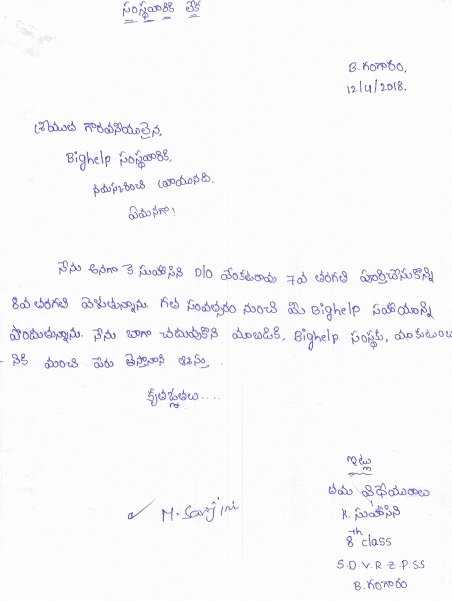 సంస్థవారికి లేఖ
B. గంగారం,
12/4/2018.
శ్రీయుత గౌరవనీయులైన,
Bighelp సంస్థవారికి,
నమస్కరించి వ్రాయునది.
ఏమనగా!
నేను అనగా కె. సుహాసిని D/O వెంకటరావు 7వ తరగతి పూర్తిచేసుకొన్ని
8వ తరగతి వెళుతున్నాను. గత సంవత్సరం నుంచి మీ Bighelp సహాయాన్ని
పొందుతున్నాను. నేను బాగా చదువుకొని మాబడికి, Bighelp సంస్థకు, మాకుటుంబా
నికి మంచి పేరు తెస్తానని ఆశిస్తు
కృతజ్ఞతలు....
ఇట్లు
తమ విధేయురాలు
K. సుహాసిని
8th class
S.D.V.R.Z.P.S.S
B. గంగారం
M. Sarojini